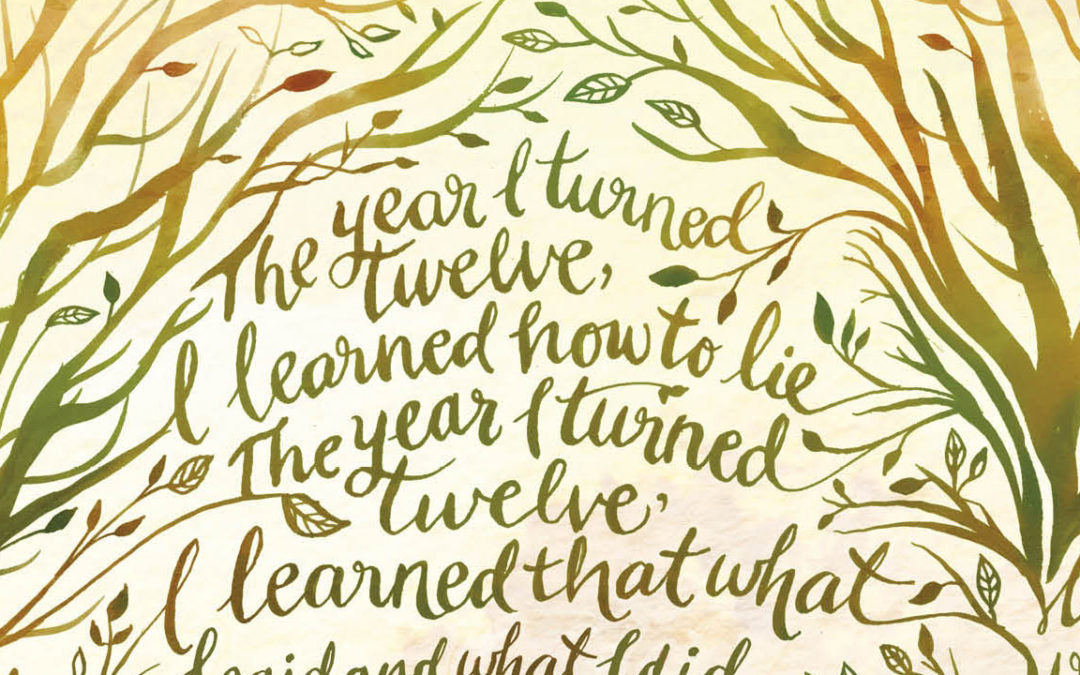 The year I turned
twelve,
I learned how to lie
The year I turned
twelve,
I learned that what
I said and what I did